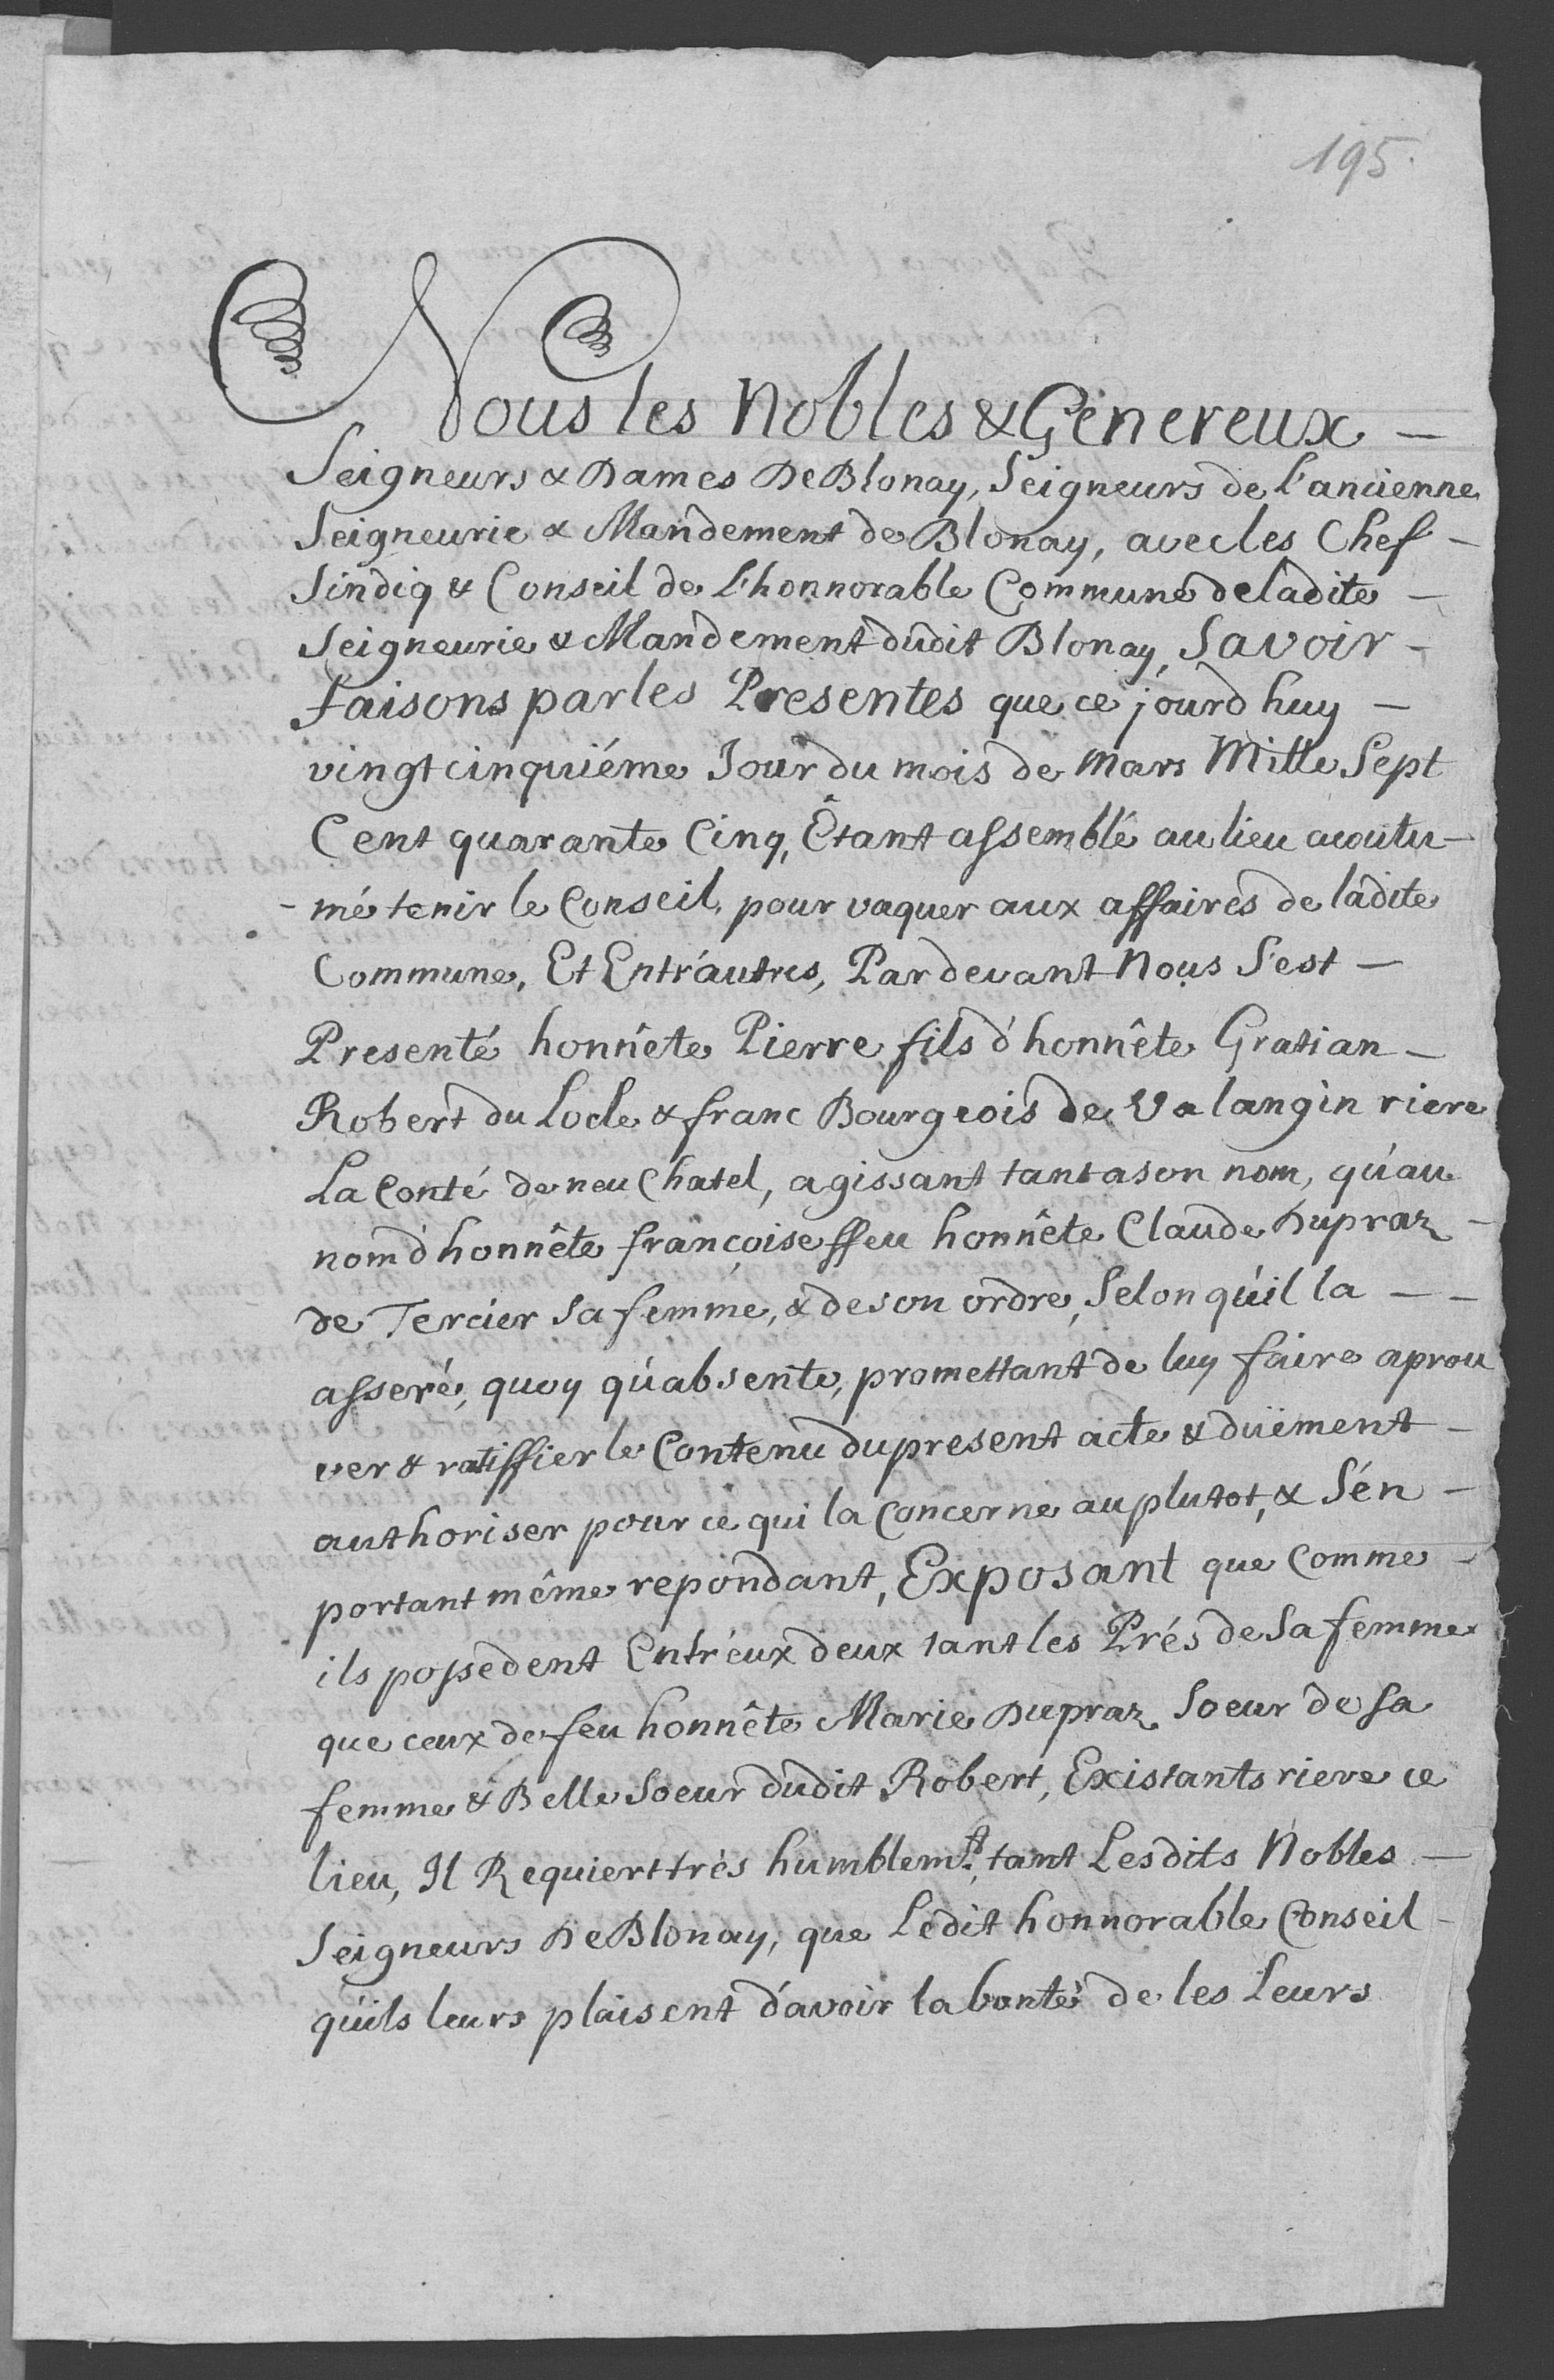 195.
Nous les Nobles & Génereux —
Seigneurs & Dames De Blonay, Seigneurs de L'ancienne
Seigneurie & Mandement de Blonay, avec les Chef —
Sindiq & Conseil de L'honnorable Commune de ladite —
Seigneurie & Mandement dudit Blonay, Savoir —
faisons par les Presentes que ce jourd huy —
vingt cinquiéme Jour du mois de Mars Mille Sept
Cent quarante Cinq, Êtant assemblé au lieu acoutu-
- mé tenir le Conseil, pour vaquer aux affaires de ladite
Commune, Et Entr'autres, Par devant Nous S'est —
Presenté honnête Pierre fils d'honnête Gratian —
Robert du Locle & franc Bourgeois de Valangin riere
La Conté de neu Chatel, agissant tant a son nom, qu'au
nom d'honnête françoise ffeu honnête Claude Dupraz —
de Tercier Sa femme, & de son ordre, Selon qu'il la — —
asseré, quoy qu'absente, promettant de luy faire aprou
ver & ratiffier le Contenu du present acte & düement —
authoriser pour ce qui la Concerne au plutot, & S'én —
portant même repondant, Exposant que Comme —
ils possedent Entr'eux deux tant les Prés de Sa femme
que ceux de feu honnête Marie Dupraz Soeur de Sa
femme & Belle Soeur dudit Robert, Existants riere ce
lieu, Il Requiert très humblemt. tant Lesdits Nobles —
Seigneurs De Blonay, que Ledit honnorable Conseil —
qu'ils leurs plaisent d'avoir la bonté de les Leurs